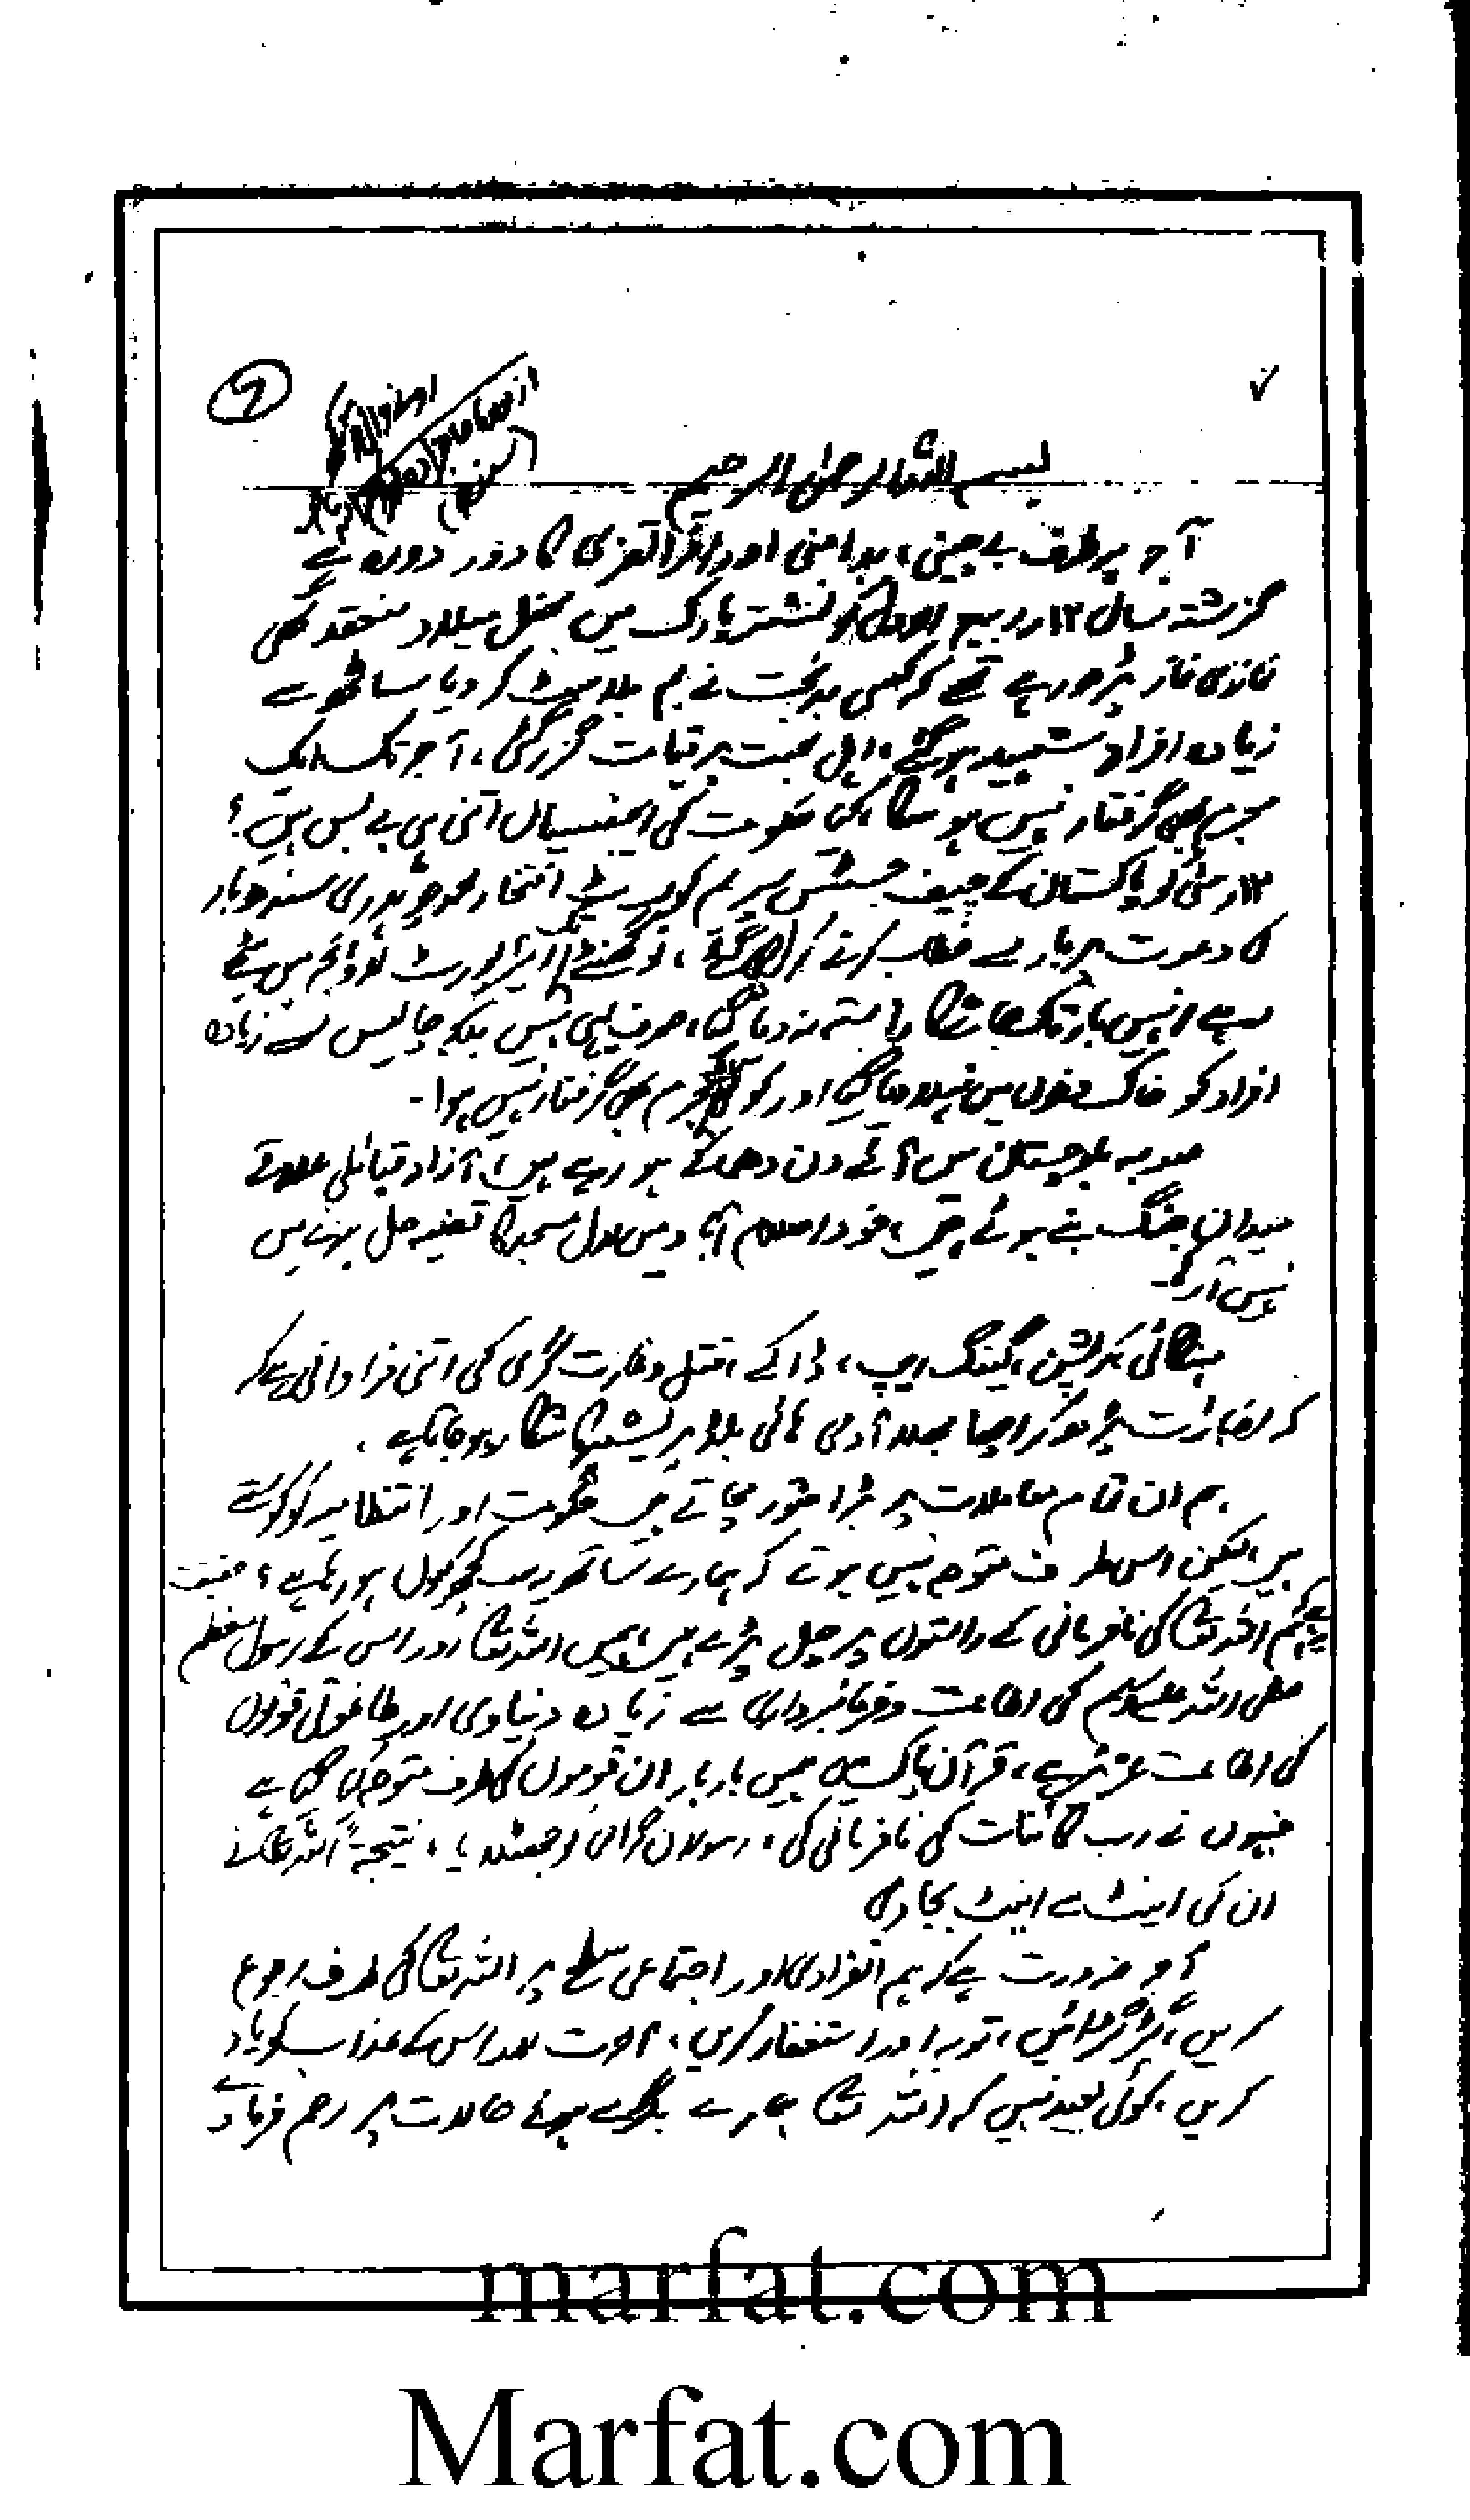 بسم اللہ الرحمٰن الرحیم
آج ہر طرف بے چینی، بدامنی اور افراتفری کا دور دورہ ہے
گزشتہ سال ۱۲ ربیع الاول کو نشتر پارک میں محفل میلاد منعقد تھی
نمازی نماز پڑھ رہے تھے کہ کسی بدبخت نے بم بلاسٹ کر دیا ساٹھ سے
زیادہ افراد شہید ہو گئے، اہل محبت پر قیامت گزر گئی، آج تک ایک
مجرم بھی گرفتار نہیں ہو سکا، کیا حکومت کی ایجنسیاں اتنی ہی بے بس ہیں؟
۱۲ مئی کو پاکستان کے چیف جسٹس سپریم کورٹ افتخار محمد چوہدری سندھ بار
کی دعوت پر بار سے خطاب کرنے کراچی گئے، نو گھنٹے ایئرپورٹ لاؤنج میں بیٹھے
رہے انہیں بار تک جانے کا راستہ نہ دیا گیا، صرف یہی نہیں بلکہ چالیس سے زیادہ
افراد کو خاک و خون میں نہلا دیا گیا اور کوئی مجرم بھی گرفتار نہیں ہوا۔
صوبہ بلوچستان میں آئے دن دھماکے ہو رہے ہیں، آزاد قبائلی علاقے
میدان جنگ بنے ہوئے ہیں، خود اسلام آباد میں لال مسجد کا قضیہ حل ہونے میں
نہیں آرہا۔
مہنگائی، کرپشن، گینگ ریپ، ڈاکے، قتل و غارت گری کی اتنی فراوانی ہے کہ
کہ اخبارات پڑھ کر اچھا بھلا آدمی ہائی بلڈ پریشر کا شکار ہو جاتا ہے۔
ہم ان تمام معاملات پر بڑا شور مچاتے ہیں حکومت اور انتظامیہ کو کوستے
ہیں، لیکن اس طرف متوجہ نہیں ہوتے کہ ہمارے ساتھ یہ سب کچھ کیوں ہو رہا ہے؟ حقیقت
یہ ہے کہ ہم اللہ تعالیٰ کی نافرمانی کے راستوں پر چل پڑے ہیں، ہمیں اللہ تعالیٰ اور اس کے رسول معظم
صلی اللہ علیہ وسلم کی اطاعت و فرمانبرداری سے زیادہ دنیاوی اور طاغوتی قوتوں
کی اطاعت عزیز ہے، قرآن پاک میں بار بار ان قوموں کی طرف متوجہ کیا گیا ہے
جنہوں نے رب کائنات کی نافرمانی کی، رسولان گرامی کو جھٹلایا، نتیجۃً اللہ تعالیٰ نے
ان کی اینٹ سے اینٹ بجا دی
آج ضرورت ہے کہ ہم انفرادی اور اجتماعی سطح پر اللہ تعالیٰ کی طرف رجوع
کریں، گڑگڑائیں، توبہ اور استغفار کریں، موت اور اس کے عذاب کو یاد
کریں، کوئی بعید نہیں کہ اللہ تعالیٰ ہمارے بگڑے ہوئے حالات پر رحم فرما دے
marfat.com
Marfat.com